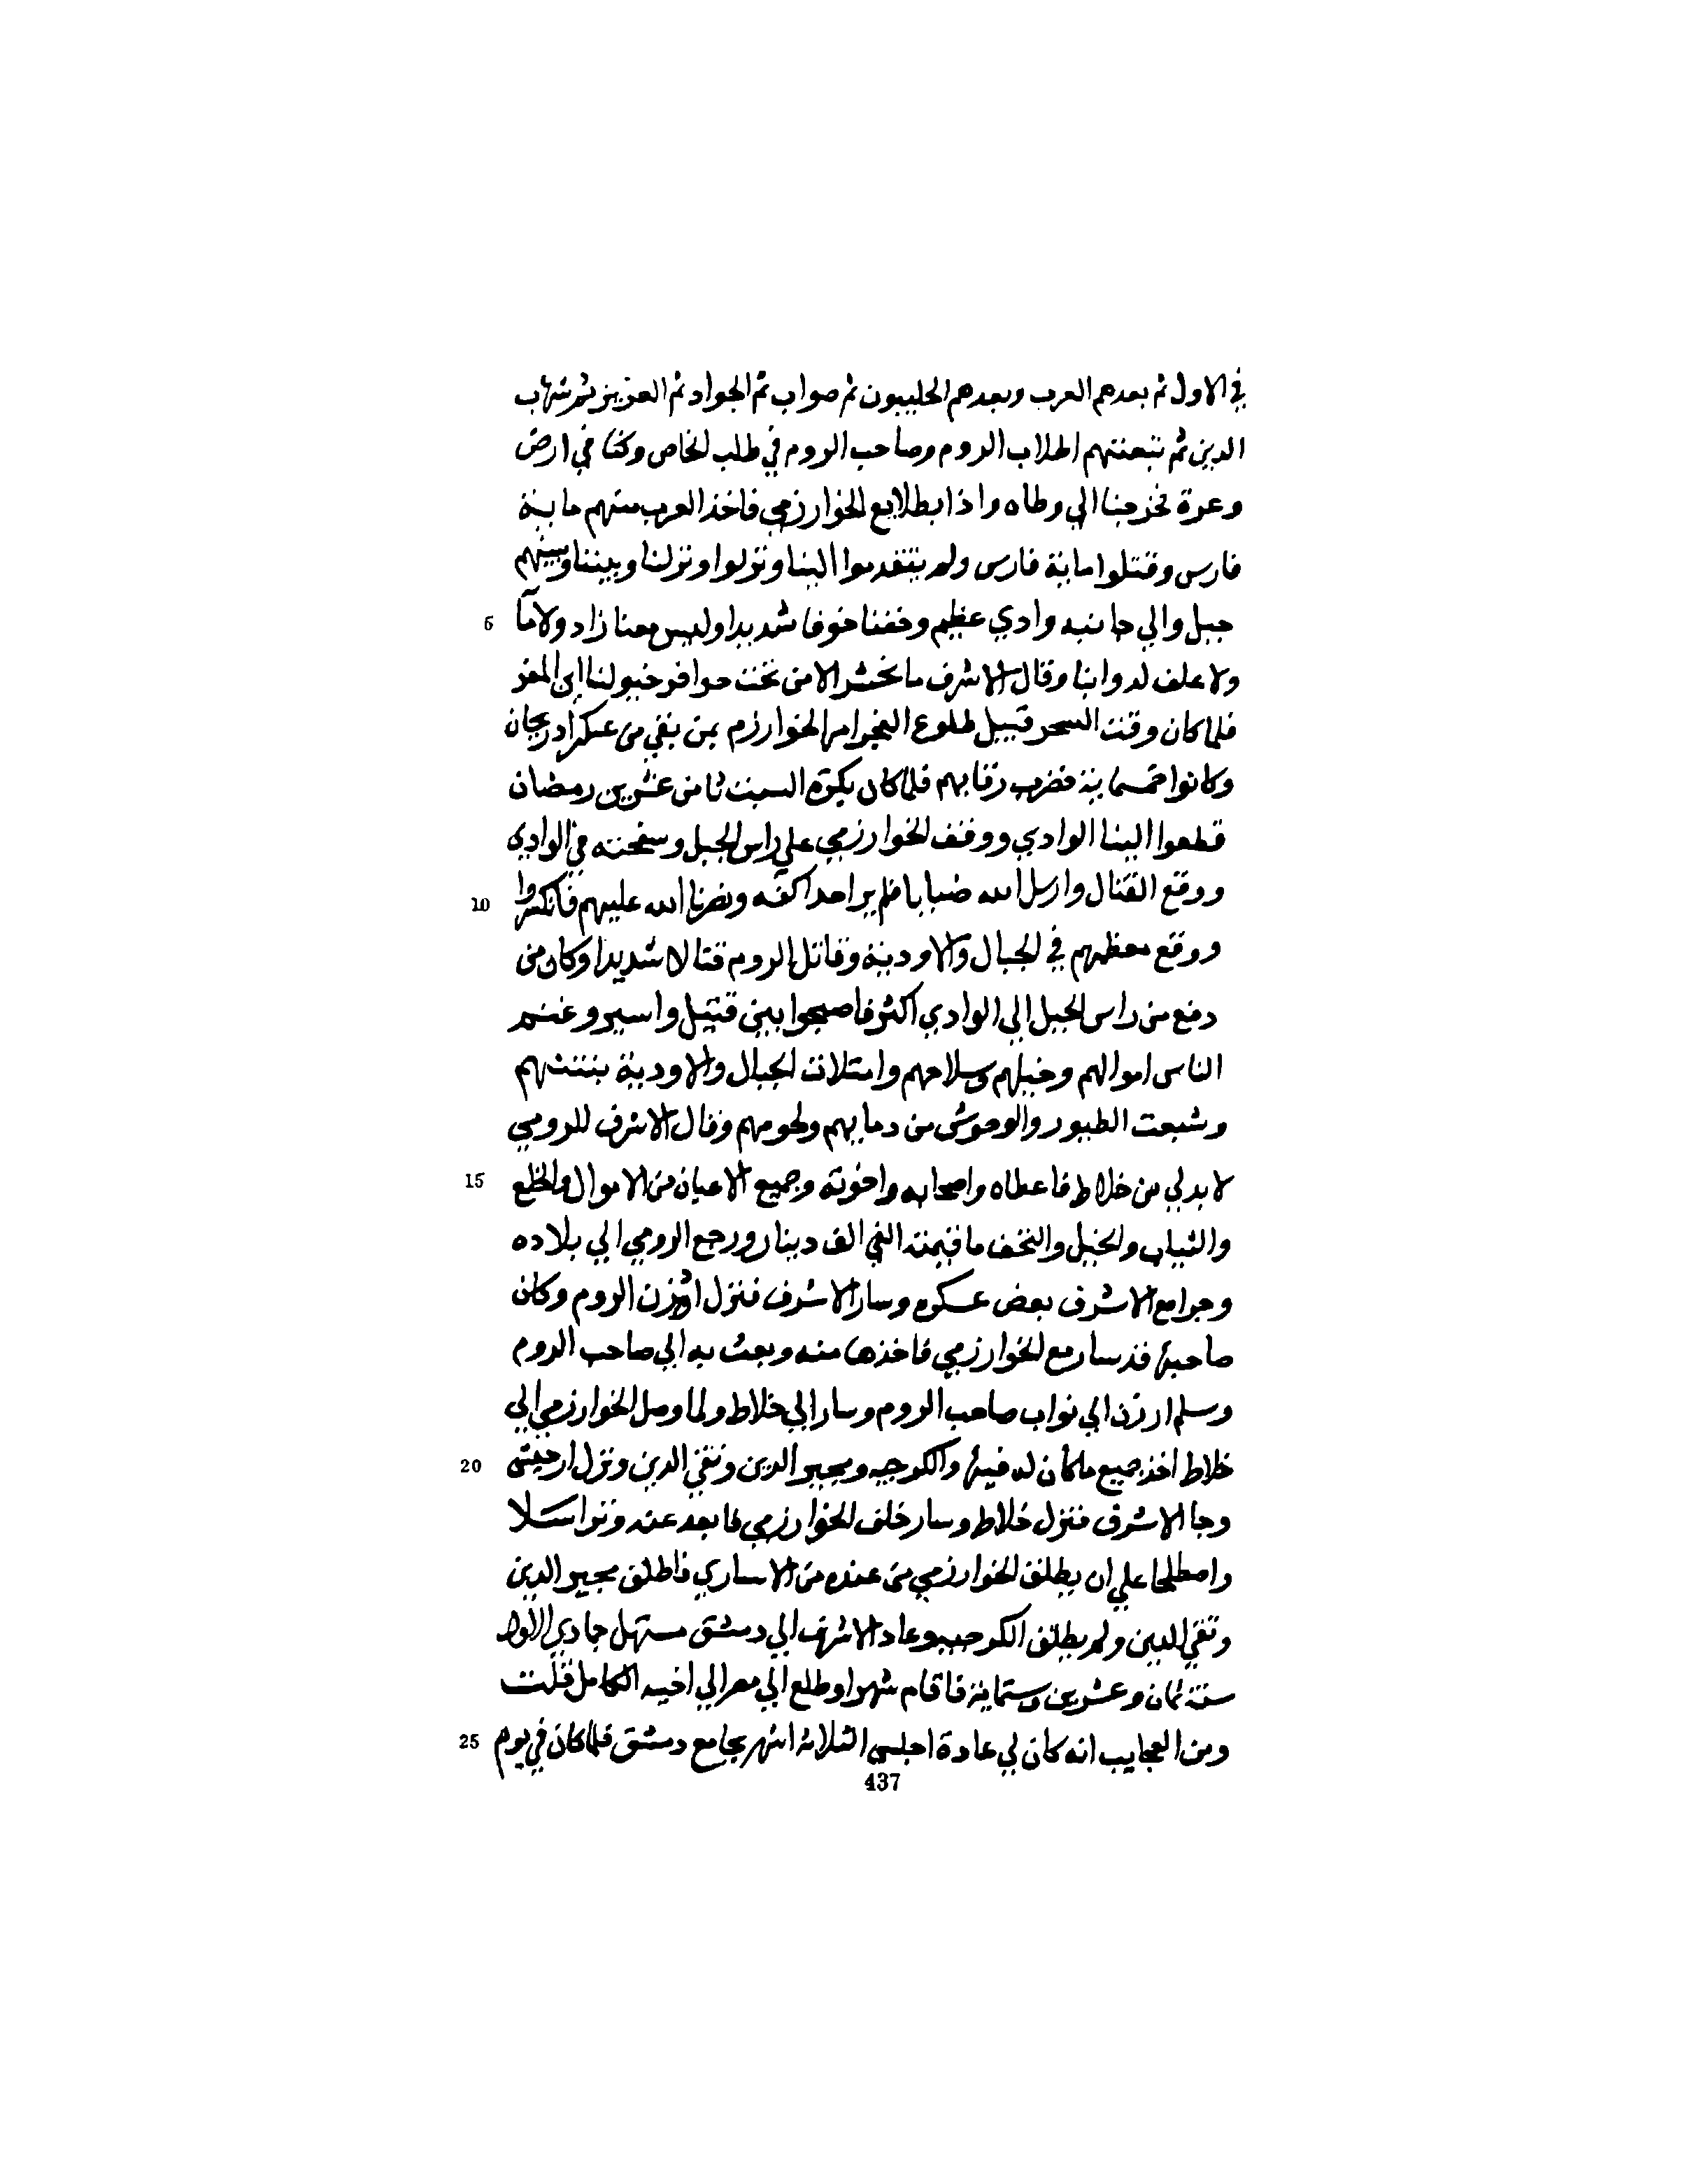 في الاول ثم بعدهم العرب وبعدهم الحلبيون ثم صواب ثم الجواد ثم العزيز ثم شهاب
الدين ثم تتبعتهم اطلاب الروم وصاحب الروم في طلب الخاص وكنا في ارض
وعرة فخرجنا الي وطاه واذا بطلايع الخوارزمي فاخذ العرب منهم مايتة
فارس وقتلوا ماية فارس ولم يتقدموا الينا ونزلوا ونزلنا وبيننا وبينهم
5 جبل والي جانبه وادي عظيم وخفنا خوفا شديدا وليس معنا زاد ولا مآ
ولا علف لدوابنا وقال الاشرف ما نحشر الا من تحت حوافر خيولنا اين المفر
فلما كان وقت السحر قبيل طلوع الفجر امر الخوارزم بمن بقي من عسكر ادربيجان
وكانوا خمسماية فضرب رقابهم فلما كان بكرة السبت ثامن عشرين رمضان
قطعوا الينا الوادي ووقف الخوارزمي علي راس الجبل وسنجته في الوادي
10 ووقع القتال وارسل الله ضبابا فلم ير احدا كفه ونصرنا الله عليهم فانكسروا
ووقع معظمهم في الجبال والاودية وقاتل الروم قتالا شديدا وكان من
دفع من راس الجبل الي الوادي اكثر فاصبحوا بين قتيل واسير وغنم
الناس اموالهم وخيلهم وسلاحهم وامتلات الجبال والاودية بتتثهم
وشبعت الطيور والوحوش من دمايهم ولحومهم وقال الاشرف للرومي
15 لا بد لي من خلاط فاعطاه واصحابه واخوته وجميع الاعيان من الاموال والخلع
والثياب والخيل والتحف ما قيمته الفي الف دينار ورجع الرومي الي بلاده
وجرا مع الاشرف بعض عسكره وسار الاشرف فنزل ارزن الروم وكان
صاحبها قد سار مع الخوارزمي فاخذها منه وبعث به الي صاحب الروم
وسلم ارزن الي نواب صاحب الروم وسار الي خلاط ولما وصل الخوارزمي الي
20 خلاط اخذ جميع ما كان له فيها والكرجيه ومجير الدين وتقي الدين ونزل ارجيش
وجا الاشرف فنزل خلاط وسار خلف الخوارزمي فابعد عنه وتراسلا
واصطلحا علي ان يطلق الخوارزمي من عنده من الاساري فاطلق مجير الدين
وتقي الدين ولم يطلق الكرجيه وعاد الاشرف الي دمشق مستهل جمادي الاولا
سنة ثمان وعشرين وستماية فاقام شهرا وطلع الي مصر الي اخيه الكامل قلت
25 ومن العجايب انه كان لي عادة اجلس الثلاثة اشهر بجامع دمشق فلما كان في يوم
437